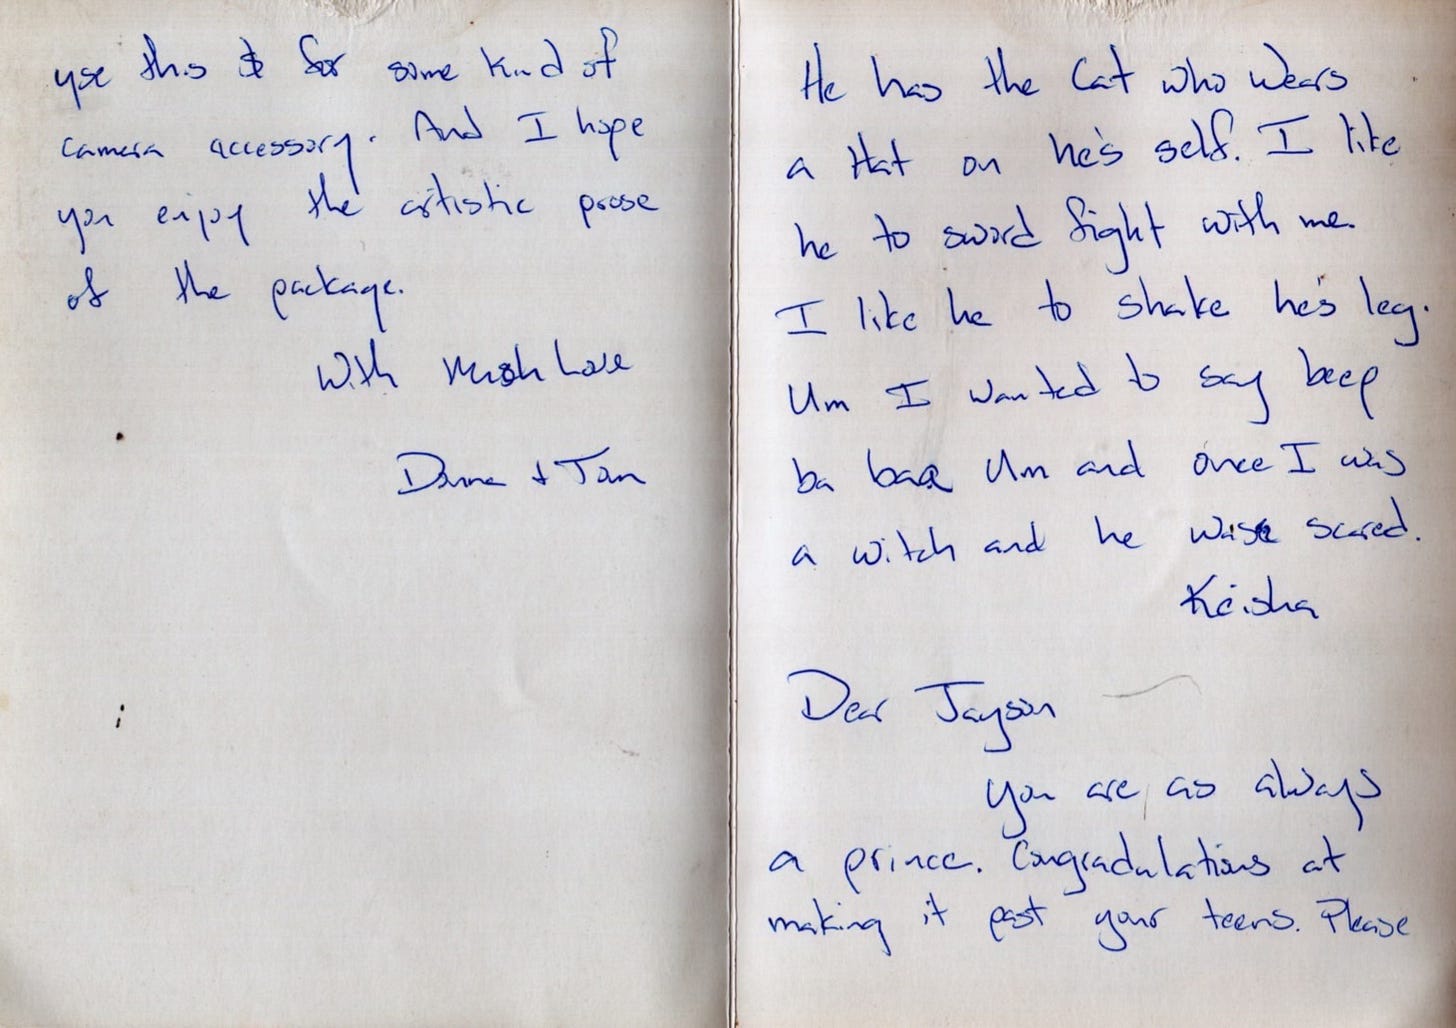 use this for some kind of
camera accessory. And I hope
you enjoy the artistic prose
of the package.
With Much Love
+ Tom
He has the Cat who wears
a Hat on he's self. I like
he to sword fight with me.
I like he to shake he's leg.
Um I wanted to say beep
ba baa Um and once I was
a witch and he was scared.
Keisha
Dear Jayson
You are, as always
a prince. Congradulations at
making it past your teens. Please